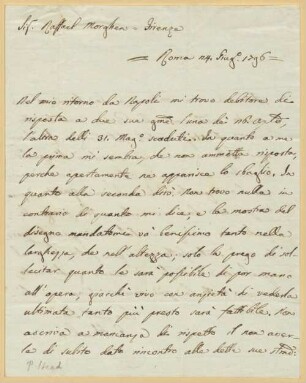 Sigr. Raffael Morghen - Firenze
Roma 24. Giugo. 1796
Nel mio ritorno da Napoli mi trovo debitore di
risposta a due sue gme. l'una dei
l'altra delli 31. Mago. scaduto. In quanto a
la prima mi sembra, che non ammetta risposta,
perchè apertamente ne apparisce lo sbaglio. In
quanto alla seconda dirò, non trovo nulla in
contrario di quanto mi dice, e la mostra del
disegno mandatomi va benissimo tanto nella
larghezza, che nell'altezza; solo la prego di sol-
lecitar quanto le sarà possibile di por mano
all'opera, giacchè vivo con ansietà di vederla
ultimata tanto più presto sarà fattibile. Non
ascriva a mancanza di rispetto il non aver-
le di subito dato riscontro alle dette sue